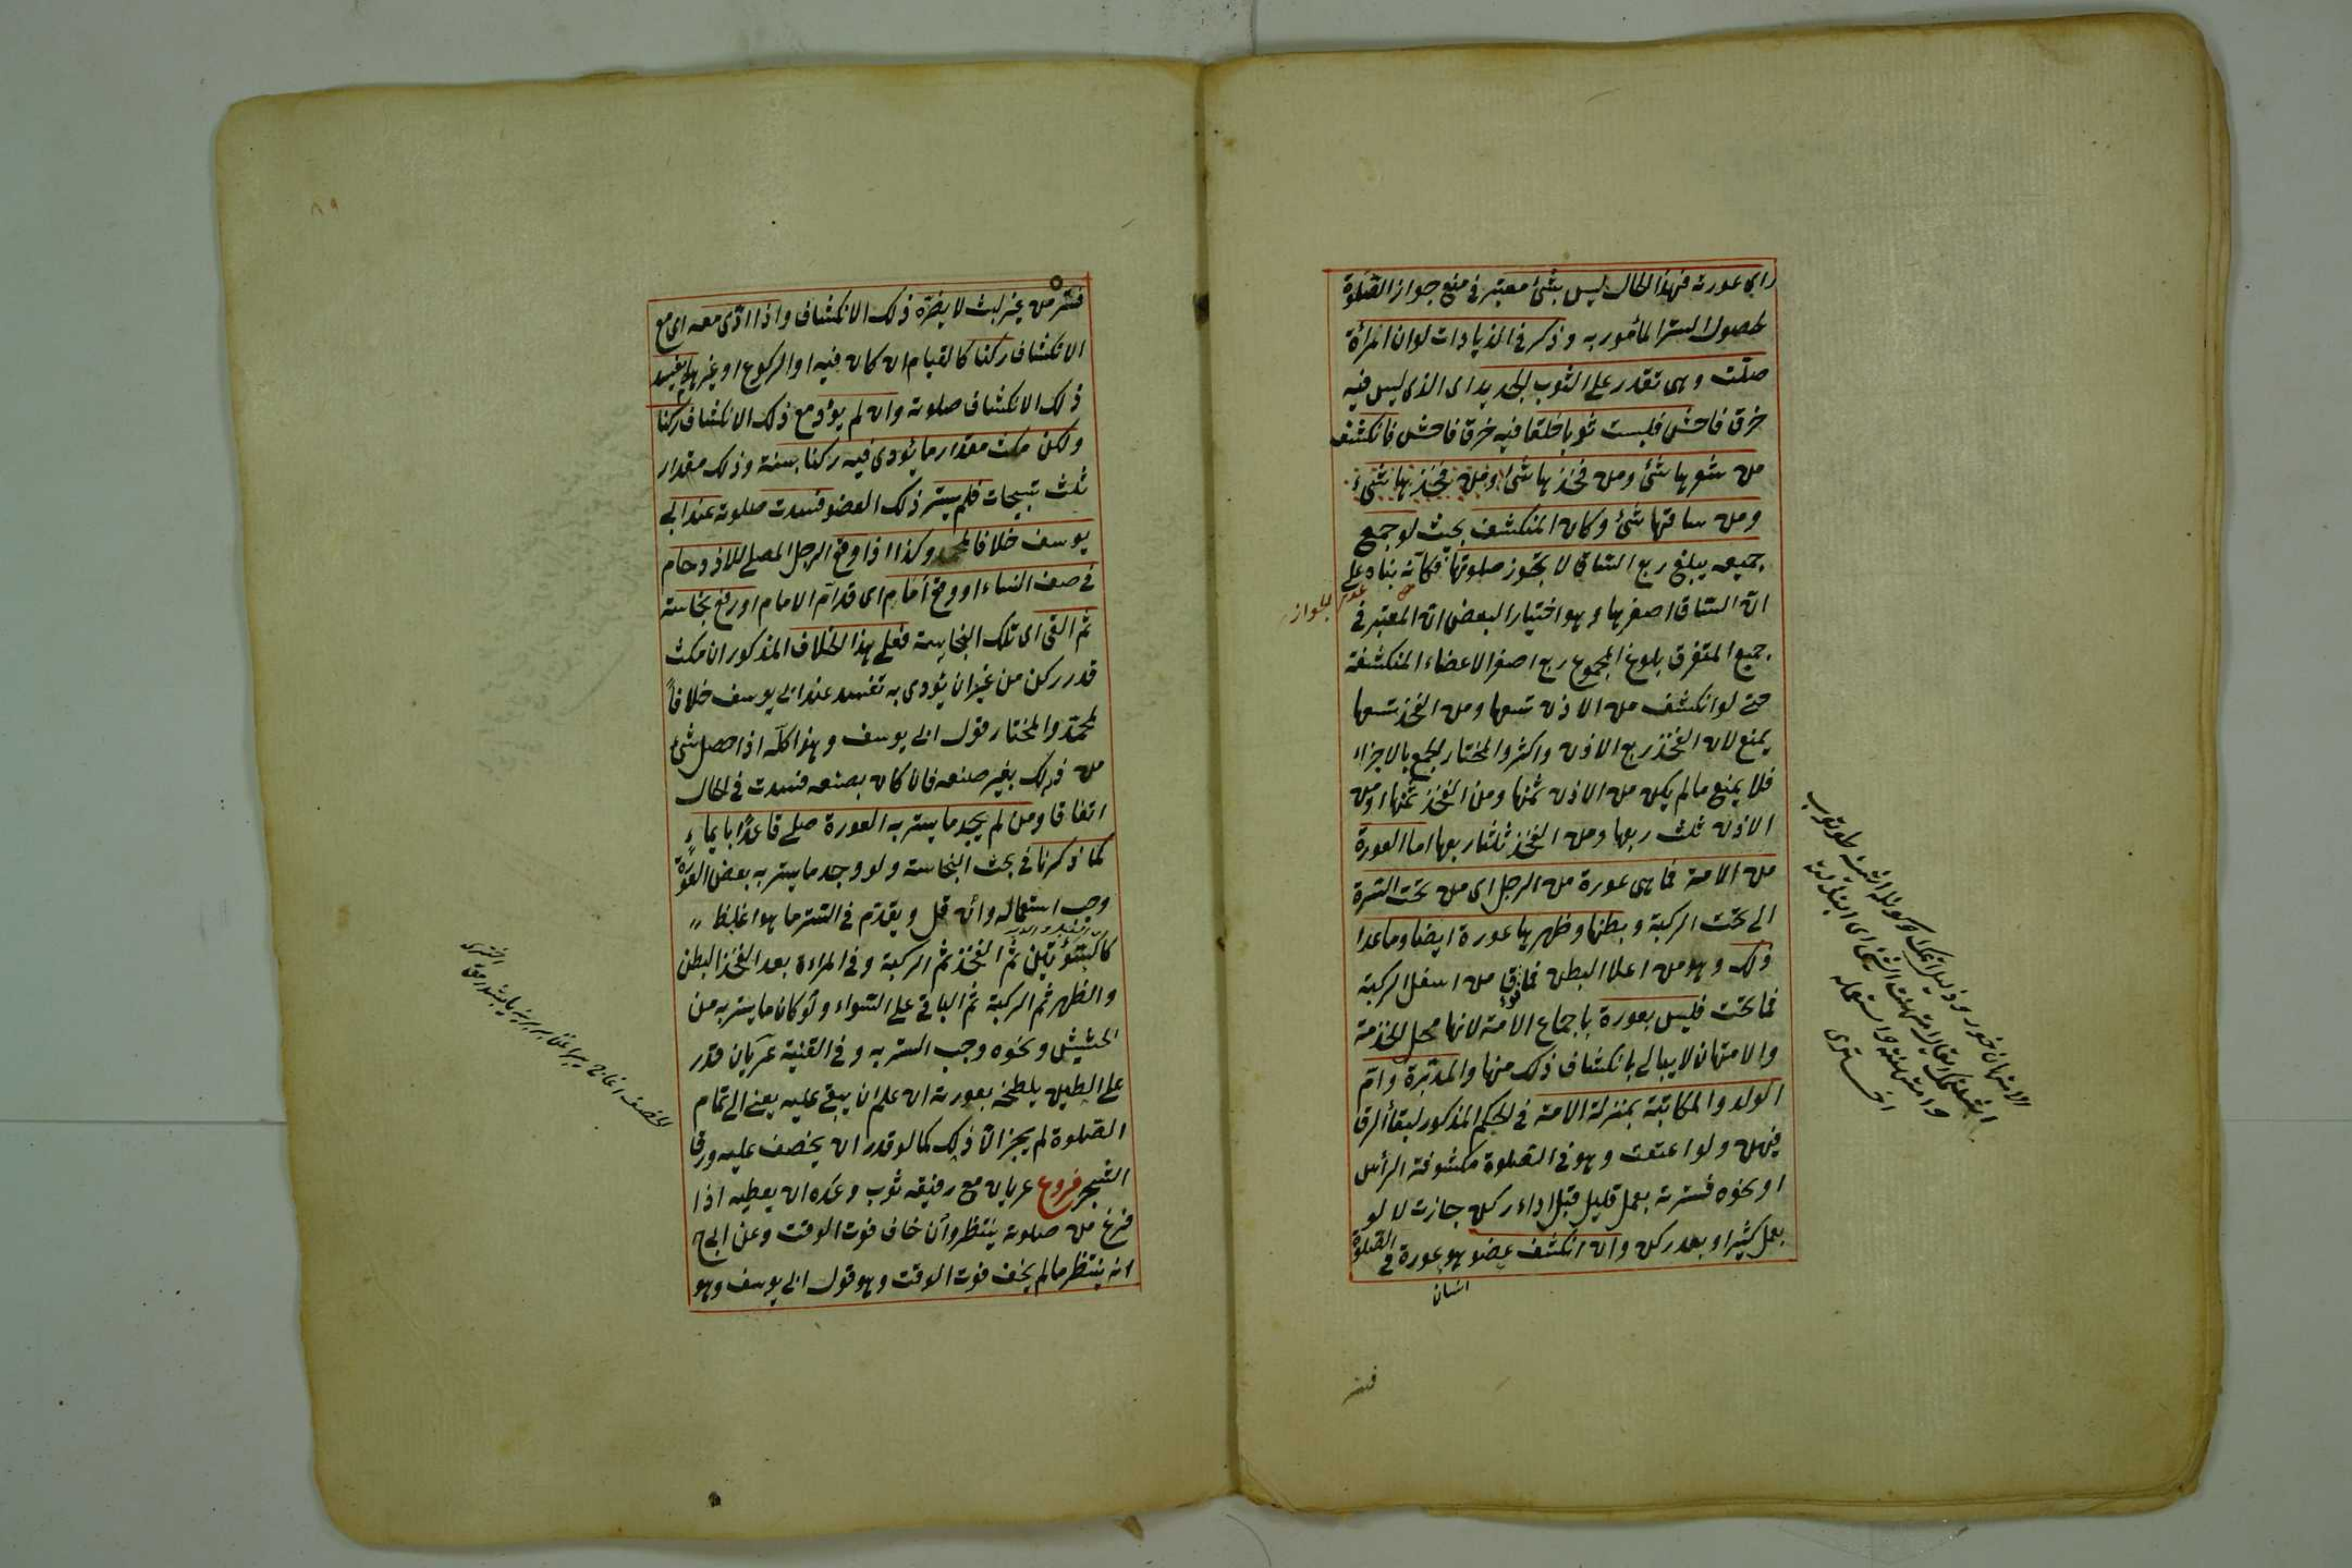 راى عورته فهذا الحال ليس بشئ معتبر فى منع جواز الصلوة
لحصول الستر المأمور به وذكر فى الزيادات لو ان امرأة
صلّت وهى تقدر على الثوب الجديد اى الذى ليس فيه
خرق فاحش فلبست ثوبا خلقا فيه خرق فاحش فانكشف
من شعرها شئ ومن فخذها شئ ومن فخذها شئ
ومن ساقها شئ وكان المنكشف بحيث لو جمع
جميعه يبلغ ربع الساق لا يجوز صلوتها فكأنه بناه على
عدم الجواز
انّ الساق اصغرها وهو اختيار البعض انّ المعتبر فى
جميع المتفرق بلوغ المجموع ربع اصغر الاعضاء المنكشفة
حتى لو انكشف من الاذن تسعها ومن الفخذ تسعها
يمنع لان الفخذ ربع الاذن واكثر والمختار الجمع بالاجزاء
فلا يمنع مالم يكن من الاذن ثمنها ومن الفخذ ثمنها او من
الاذن ثلث ربعها ومن الفخذ ثلثا ربعها اما العورة
من الامة فما هى عورة من الرجل اى من تحت السرة
الى تحت الركبة وبطنها وظهرها عورة ايضا وما عدا
ذلك وهو من اعلا البطن فما فوق من اسفل الركبة
فما تحت فليس بعورة باجماع الامة لانها محل للخدمة
والامتهان لا يبالى بانكشاف ذلك منها والمدبّرة وامّ
الولد والمكاتبة بمنزلة الامة فى الحكم المذكور لبقاء الرقّ
فيهن ولو اعتقت وهو فى الصلوة مكشوفة الرأس
او نحوه فسترته بعمل قليل قبل اداء ركن جازت لا لو
بعمل كثير او بعد ركن وان انكشف عضو هو عورة فى الصلوة
انسان
فستر
الامتهان خور وذليل
اخترى
فستر من غير لبث لا يضره ذلك الانكشاف واذا ادّى معه اى مع
الانكشاف ركنا كالقيام ان كان فيه او الركوع او غيرهما يفسد
ذلك الانكشاف صلوته وان لم يؤد مع ذلك الانكشاف ركنا
ولكن مكث مقدار ما يؤدى فيه ركنا بسنة وذلك مقدار
ثلث تسبيحات فلم يستر ذلك العضو فسدت صلوته عند ابى
يوسف خلافا لمحمد وكذا اذا وقع الرجل المصلى للازدحام
فى صف النساء او وقع امام اى قدام الامام او رفع نجاسة
ثم القى اى تلك النجاسة فعلى هذا الخلاف المذكور ان مكث
قدر ركن من غير ان يؤدى به تفسد عند ابى يوسف خلافاً
لمحمد والمختار قول ابى يوسف وهذا كله اذا حصل شئ
من ذلك بغير صنعه فان كان بصنعه فسدت فى الحال
اتفاقا ومن لم يجد ما يستر به العورة صلى قاعدًا بايماء
كما ذكرنا فى بحث النجاسة ولو وجد ما يستر به بعض العورة
وجب استعماله وأن قل ويقدّم فى الستر ما هو اغلظ
كالسّوئتين ثم الفخذ ثم الركبة وفى المراءة بعد الفخذ البطن
والظهر ثم الركبة ثم الباقى على السّواء ولو كان ما يستر به من
الحشيش ونحوه وجب الستر به وفى القنية عريان قدر
على الطين يلطخه بعورته ان علم ان يبقى عليه يعنى الى تمام
الصلوة لم يجز الّا ذلك كما لو قدر ان يخصف عليه ورق
الشجر فروع عريان مع رفيقه ثوب وعده ان يعطيه اذا
فرغ من صلوته ينتظر وأن خاف فوت الوقت وعن ابى ح
انه ينتظر مالم يخف فوت الوقت وهو قول ابى يوسف وهو
اخترى